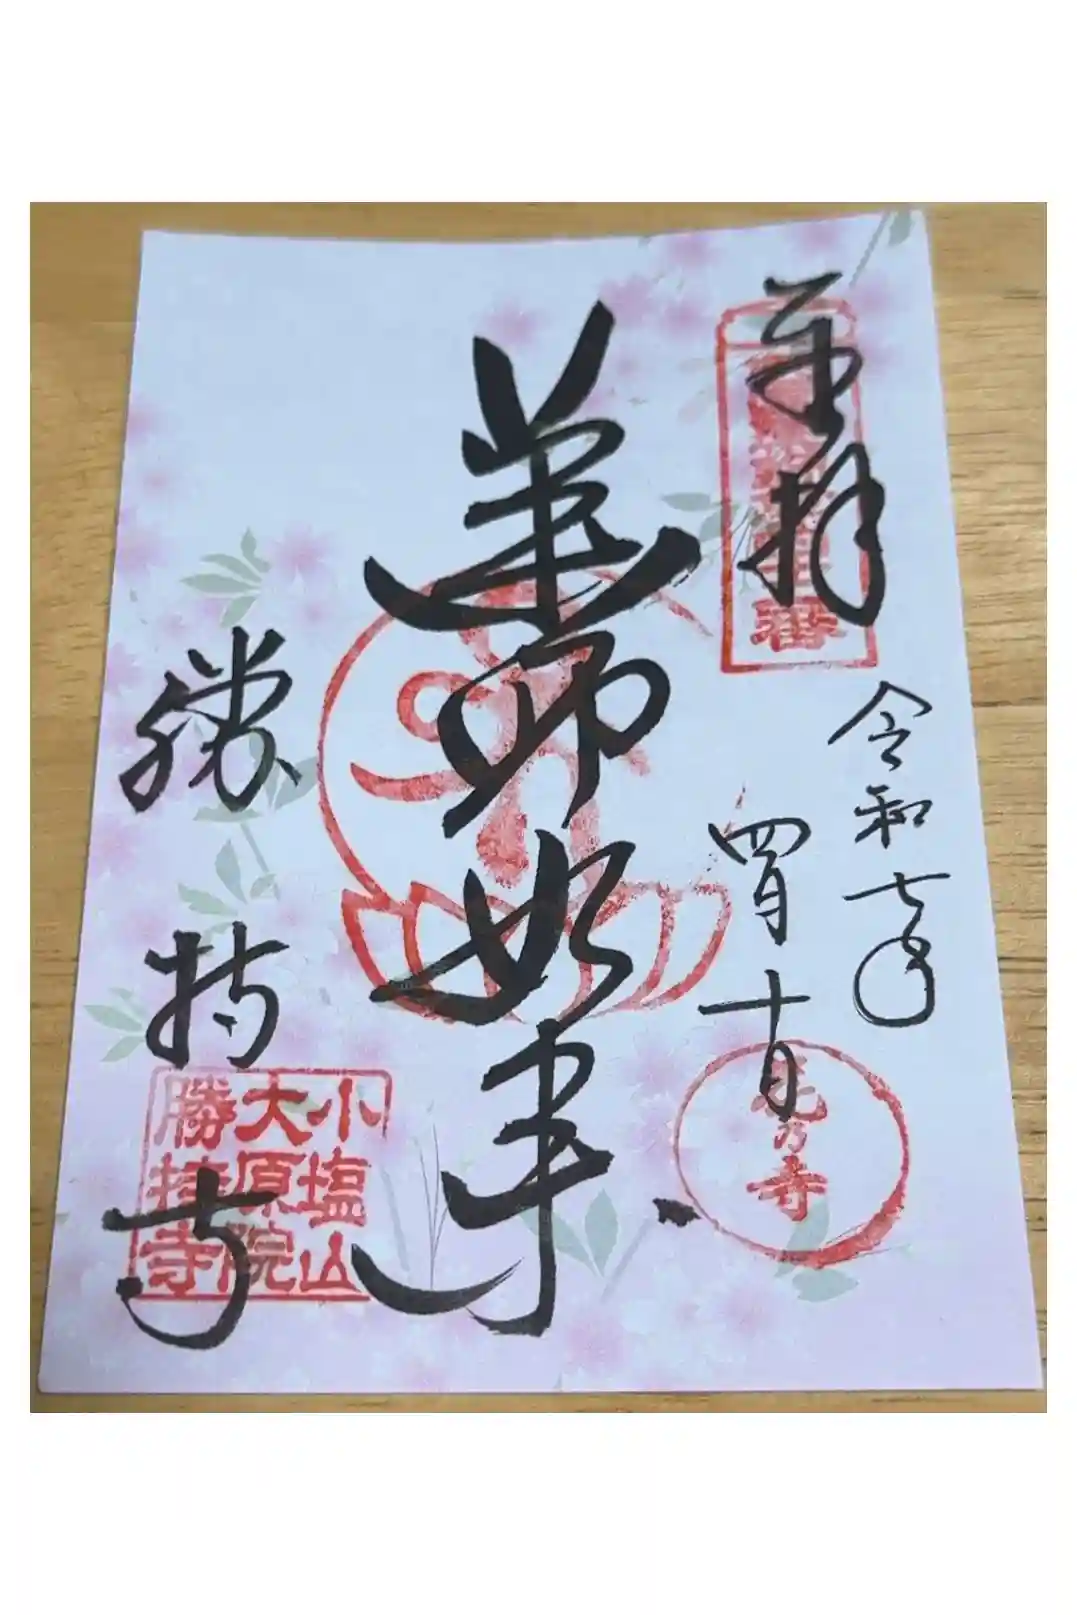 奉拝
番
令和七年
四月十日
花乃寺
薬師如来
勝持寺
小塩山
大原院
勝持寺